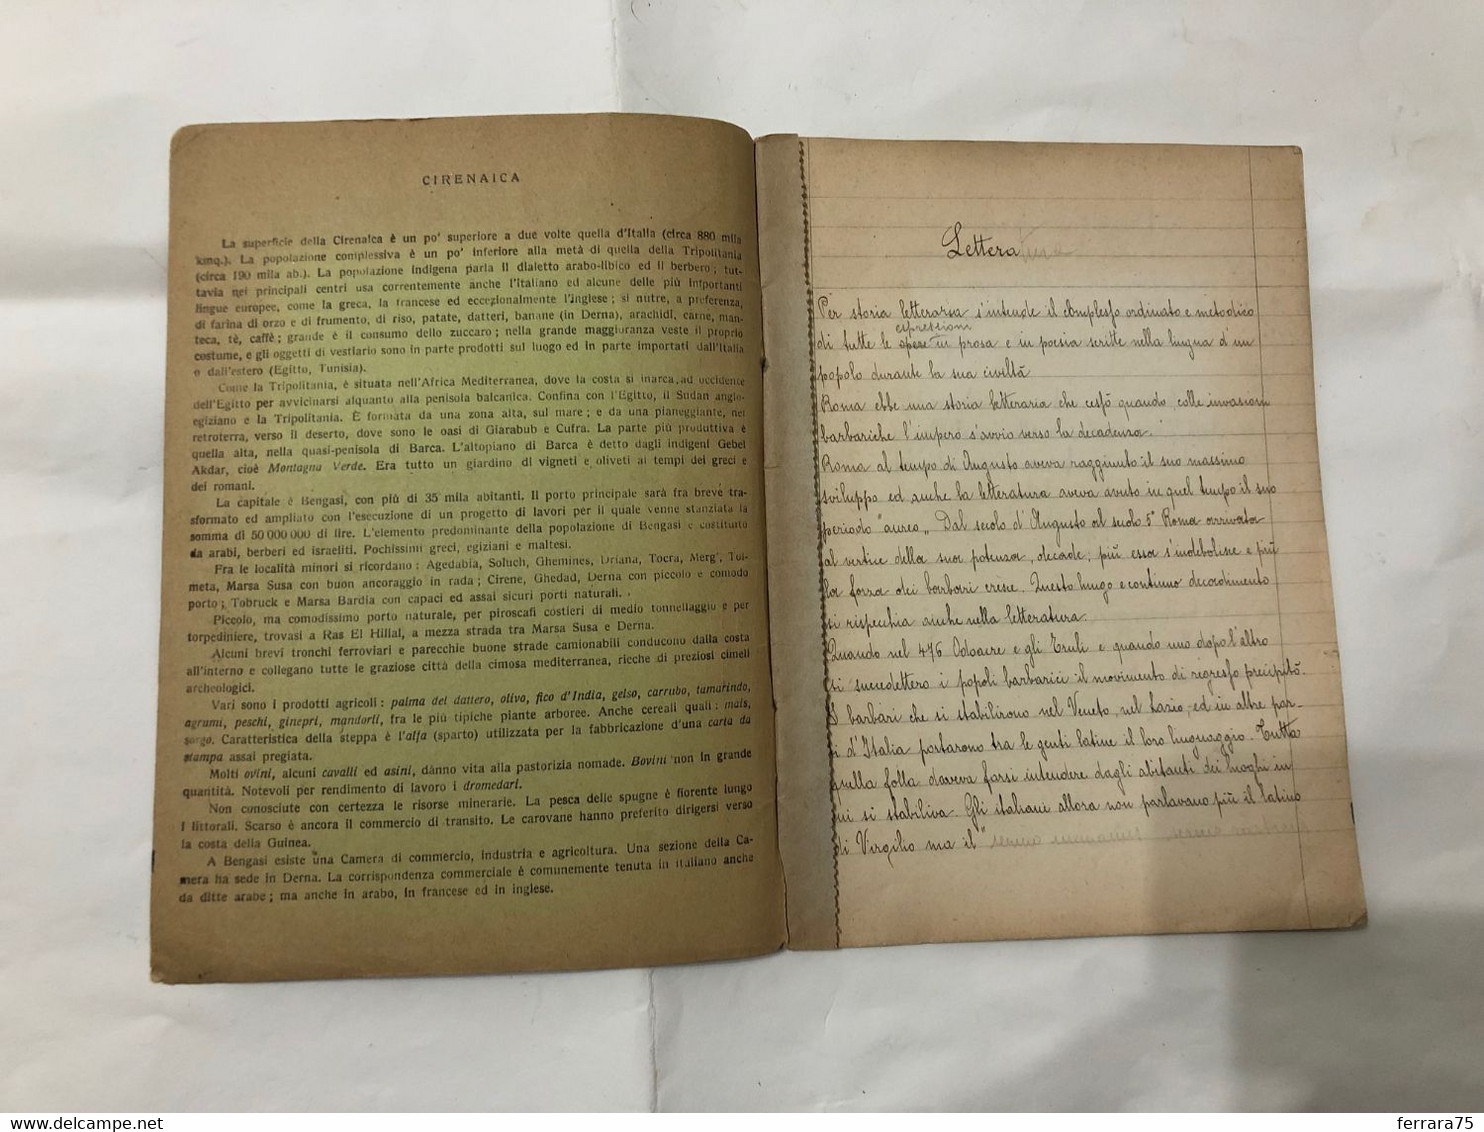 CIRENAICA
La superficie della Cirenaica è un po' superiore a due volte quella d'Italia (circa 880 mila
kmq.). La popolazione complessiva è un po' inferiore alla metà di quella della Tripolitania
(circa 190 mila ab.). La popolazione indigena parla il dialetto arabo-libico ed il berbero; tut-
tavia nei principali centri usa correntemente anche l'italiano ed alcune delle più importanti
lingue europee, come la greca, la francese ed eccezionalmente l'inglese; si nutre, a preferenza,
di farina di orzo e di frumento, di riso, patate, datteri, banane (in Derna), arachidi, carne, man-
teca, tè, caffè; grande è il consumo dello zuccaro; nella grande maggiuranza veste il proprio
costume, e gli oggetti di vestiario sono in parte prodotti sul luogo ed in parte importati dall'Italia
o dall'estero (Egitto, Tunisia).
Come la Tripolitania, è situata nell'Africa Mediterranea, dove la costa si inarca ad occidente
dell'Egitto per avvicinarsi alquanto alla penisola balcanica. Confina con l'Egitto, il Sudan anglo-
egiziano e la Tripolitania. È formata da una zona alta, sul mare; e da una pianeggiante, nel
retroterra, verso il deserto, dove sono le oasi di Giarabub e Cufra. La parte più produttiva è
quella alta, nella quasi-penisola di Barca. L'altopiano di Barca è detto dagli indigeni Gebel
Akdar, cioè Montagna Verde. Era tutto un giardino di vigneti e oliveti ai tempi dei greci e
dei romani.
La capitale è Bengasi, con più di 35 mila abitanti. Il porto principale sarà fra breve tra-
sformato ed ampliato con l'esecuzione di un progetto di lavori per il quale venne stanziata la
somma di 50 000 000 di lire. L'elemento predominante della popolazione di Bengasi è costituito
da arabi, berberi ed israeliti. Pochissimi greci, egiziani e maltesi.
Fra le località minori si ricordano: Agedabia, Soluch, Ghemines, Driana, Tocra, Merg', Tol-
meta, Marsa Susa con buon ancoraggio in rada; Cirene, Ghedad, Derna con piccolo e comodo
porto; Tobruck e Marsa Bardia con capaci ed assai sicuri porti naturali.
Piccolo, ma comodissimo porto naturale, per piroscafi costieri di medio tonnellaggio e per
torpediniere, trovasi a Ras El Hillal, a mezza strada tra Marsa Susa e Derna.
Alcuni brevi tronchi ferroviari e parecchie buone strade camionabili conducono dalla costa
all'interno e collegano tutte le graziose città della cimosa mediterranea, ricche di preziosi cimeli
archeologici.
Vari sono i prodotti agricoli: palma del dattero, olivo, fico d'India, gelso, carrubo, tamarindo,
agrumi, peschi, ginepri, mandorli, fra le più tipiche piante arboree. Anche cereali quali: mais,
sorgo. Caratteristica della steppa è l'alfa (sparto) utilizzata per la fabbricazione d'una carta da
stampa assai pregiata.
Molti ovini, alcuni cavalli ed asini, dànno vita alla pastorizia nomade. Bovini non in grande
quantità. Notevoli per rendimento di lavoro i dromedari.
Non conosciute con certezza le risorse minerarie. La pesca delle spugne è fiorente lungo
i littorali. Scarso è ancora il commercio di transito. Le carovane hanno preferito dirigersi verso
la costa della Guinea.
A Bengasi esiste una Camera di commercio, industria e agricoltura. Una sezione della Ca-
mera ha sede in Derna. La corrispondenza commerciale è comunemente tenuta in italiano anche
da ditte arabe; ma anche in arabo, in francese ed in inglese.
Letteratura
Per storia letteraria s'intende il complesso ordinato e metodico
espressioni
di tutte le opere in prosa e in poesia scritte nella lingua d'un
popolo durante la sua civiltà
Roma ebbe una storia letteraria che cessò quando, colle invasioni
barbariche l'impero s'avviò verso la decadenza.
Roma al tempo di Augusto aveva raggiunto il suo massimo
sviluppo ed anche la letteratura aveva avuto in quel tempo il suo
periodo "aureo„ Dal secolo d'Augusto al secolo 5° Roma arrivata
al vertice della sua potenza, decade; più essa s'indebolisce e più
la forza dei barbari cresce. Questo lungo e continuo decadimento
si rispecchia anche nella letteratura.
Quando nel 476 Odoacre e gli Eruli e quando uno dopo l'altro
si succedettero i popoli barbarici il movimento di regresso precipitò.
I barbari che si stabilirono nel Veneto, nel Lazio, ed in altre par-
ti d'Italia portarono tra le genti latine il loro linguaggio. Tutta
quella folla doveva farsi intendere dagli abitanti dei luoghi in
cui si stabiliva. Gli italiani allora non parlavano più il latino
di Virgilio ma il "
ferrara75